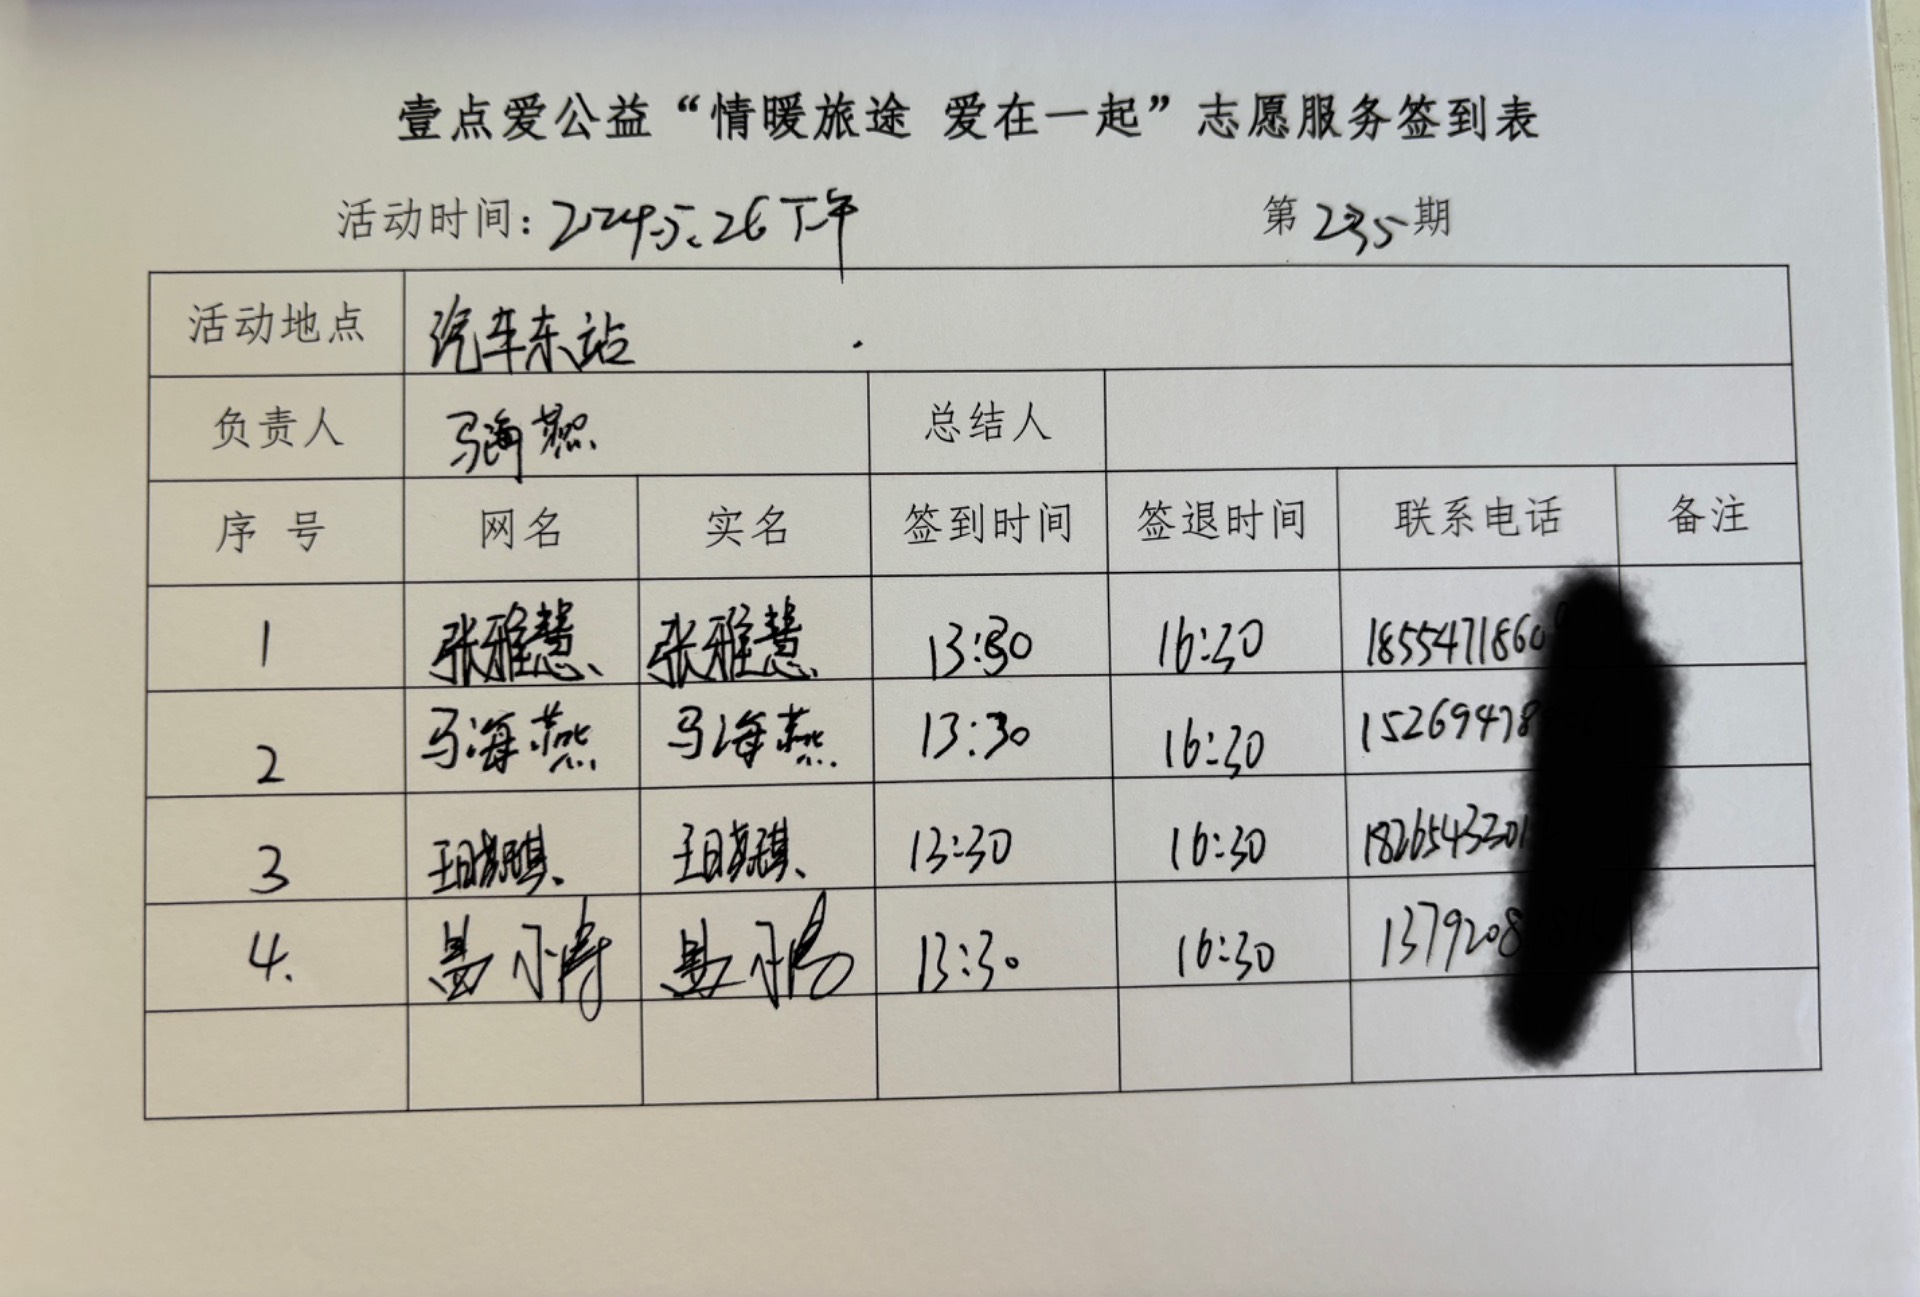 壹点爱公益“情暖旅途 爱在一起”志愿服务签到表
活动时间：2024.5.26下午 第235期
活动地点 汽车东站
负责人 马海燕 总结人
序号 网名 实名 签到时间 签退时间 联系电话 备注
1 张雅慧 张雅慧 13:30 16:30 1855471860
2 马海燕 马海燕 13:30 16:30 15269478
3 13:30 16:30 1826543301
4. 13:30 16:30 1379208